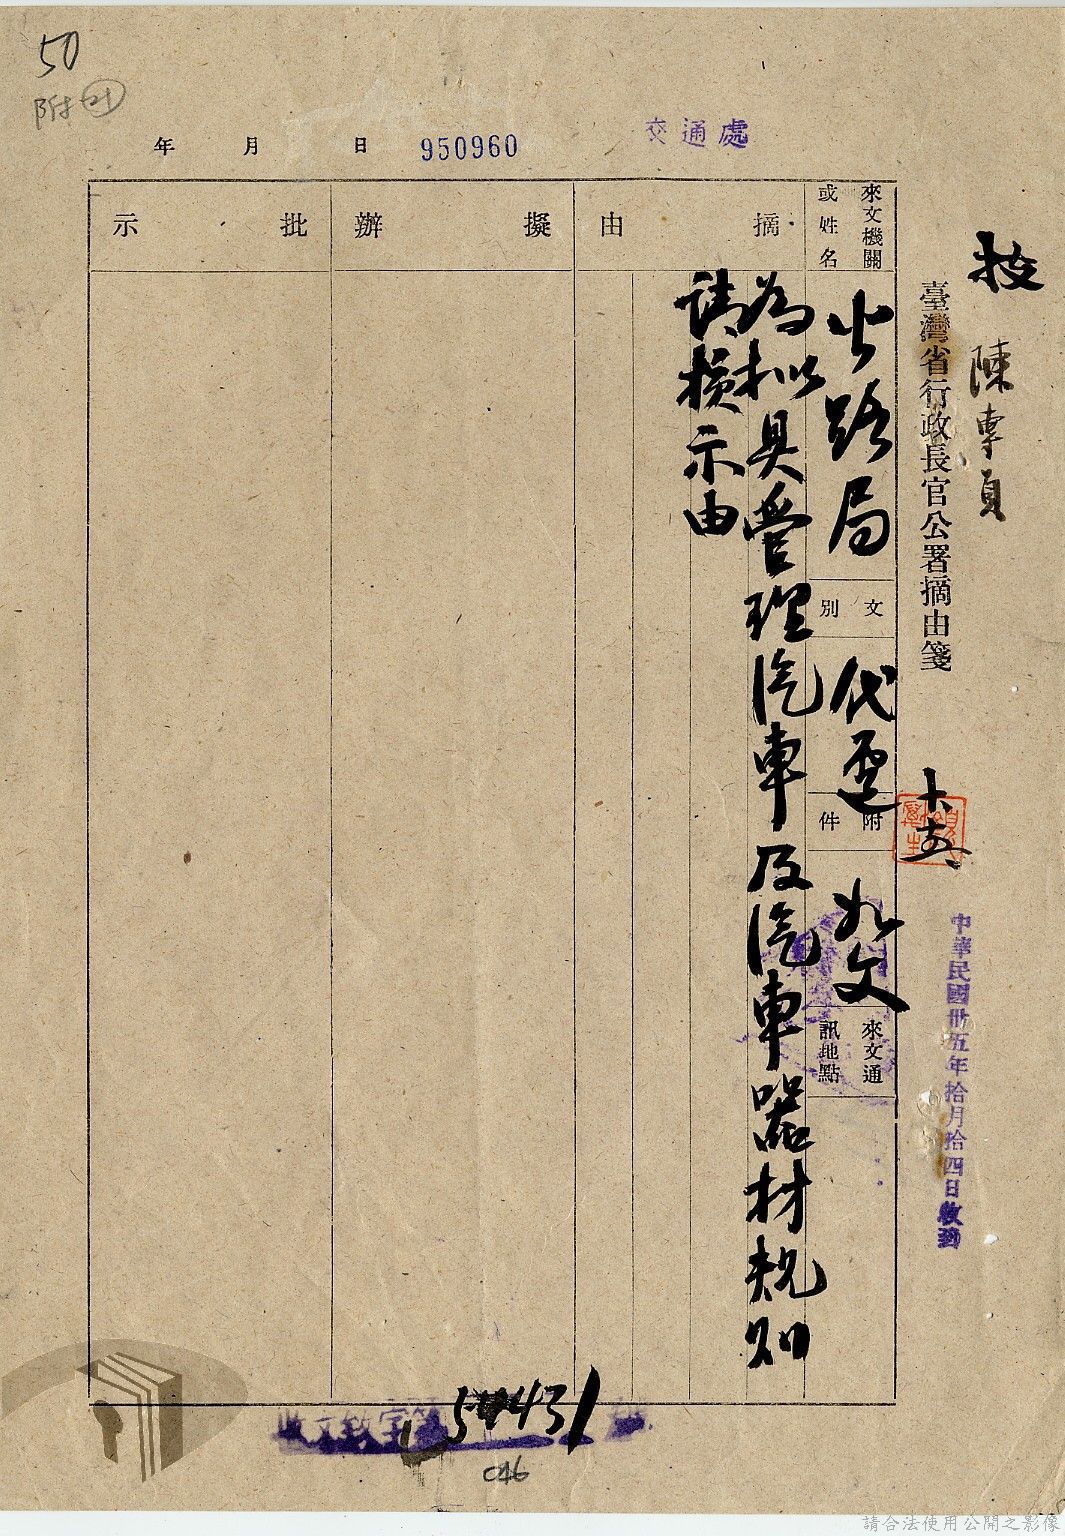 50
附21
年 月 日 950960
交通處
技
陳專員
臺灣省行政長官公署摘由箋
中華民國卅五年拾月拾四日收到
來文機關
或姓名
公路局
文別
代電
附件
如文
來文通
訊地點
摘由
為拟具管理汽車及汽車器材規則
請核示由
擬辦
批示
收文致字第
046
請合法使用公開之影像